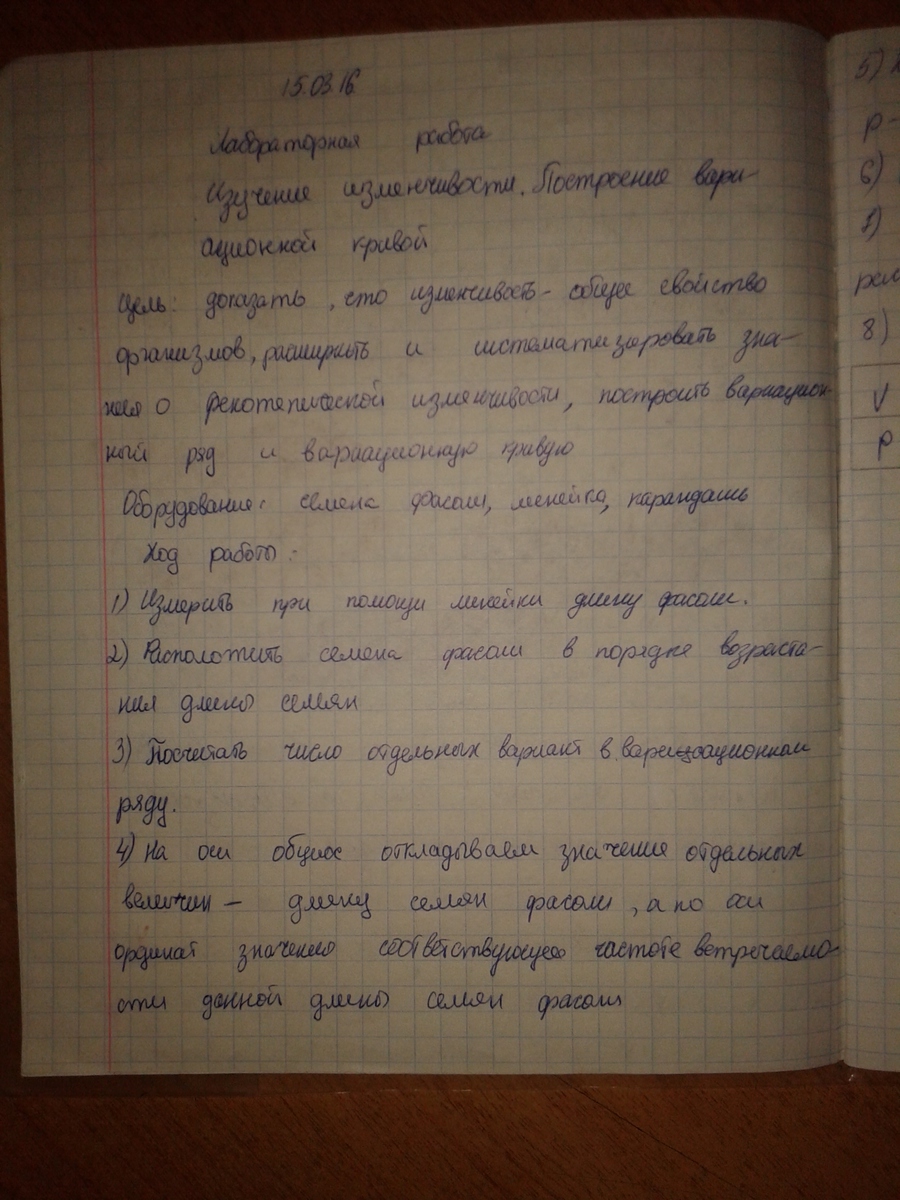 15.03.16
Лабораторная работа
Изучение изменчивости. Построение вари-
ационной кривой
Цель: доказать, что изменчивость - общее свойство
организмов, расширить и систематизировать зна-
ния о фенотепической изменчивости, построить вариацион-
ный ряд и вариационную кривую
Оборудование: семена фасоли, линейка, карандашь
Ход работы:
1) Измерить при помощи линейки длину фасоли.
2) Расположить семена фасоли в порядке возраста-
ния длины семян
3) Посчитать число отдельных вариант в вариационном
ряду.
4) На оси абцисс откладываем значение отдельных
величин - длину семян фасоли, а по оси
ординат значение соответствующее частоте встречаемо-
сти данной длины семян фасоли
5)
р -
6)
7)
8)
V
р